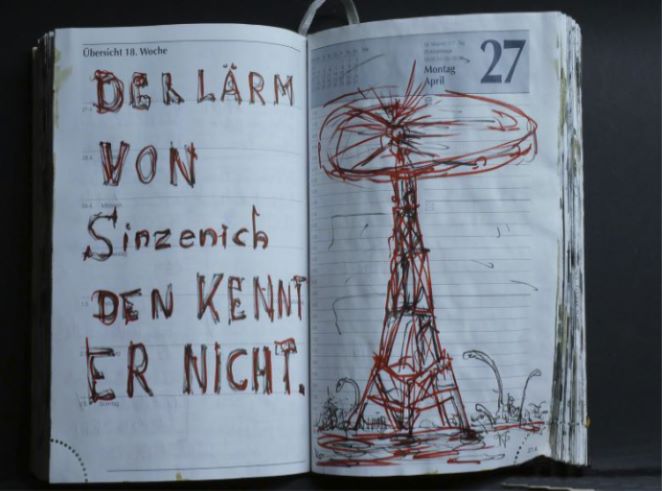 Übersicht 18. Woche
DER LÄRM
VON
Sinzenich
DEN KENNT
ER NICHT.
Montag
April
27